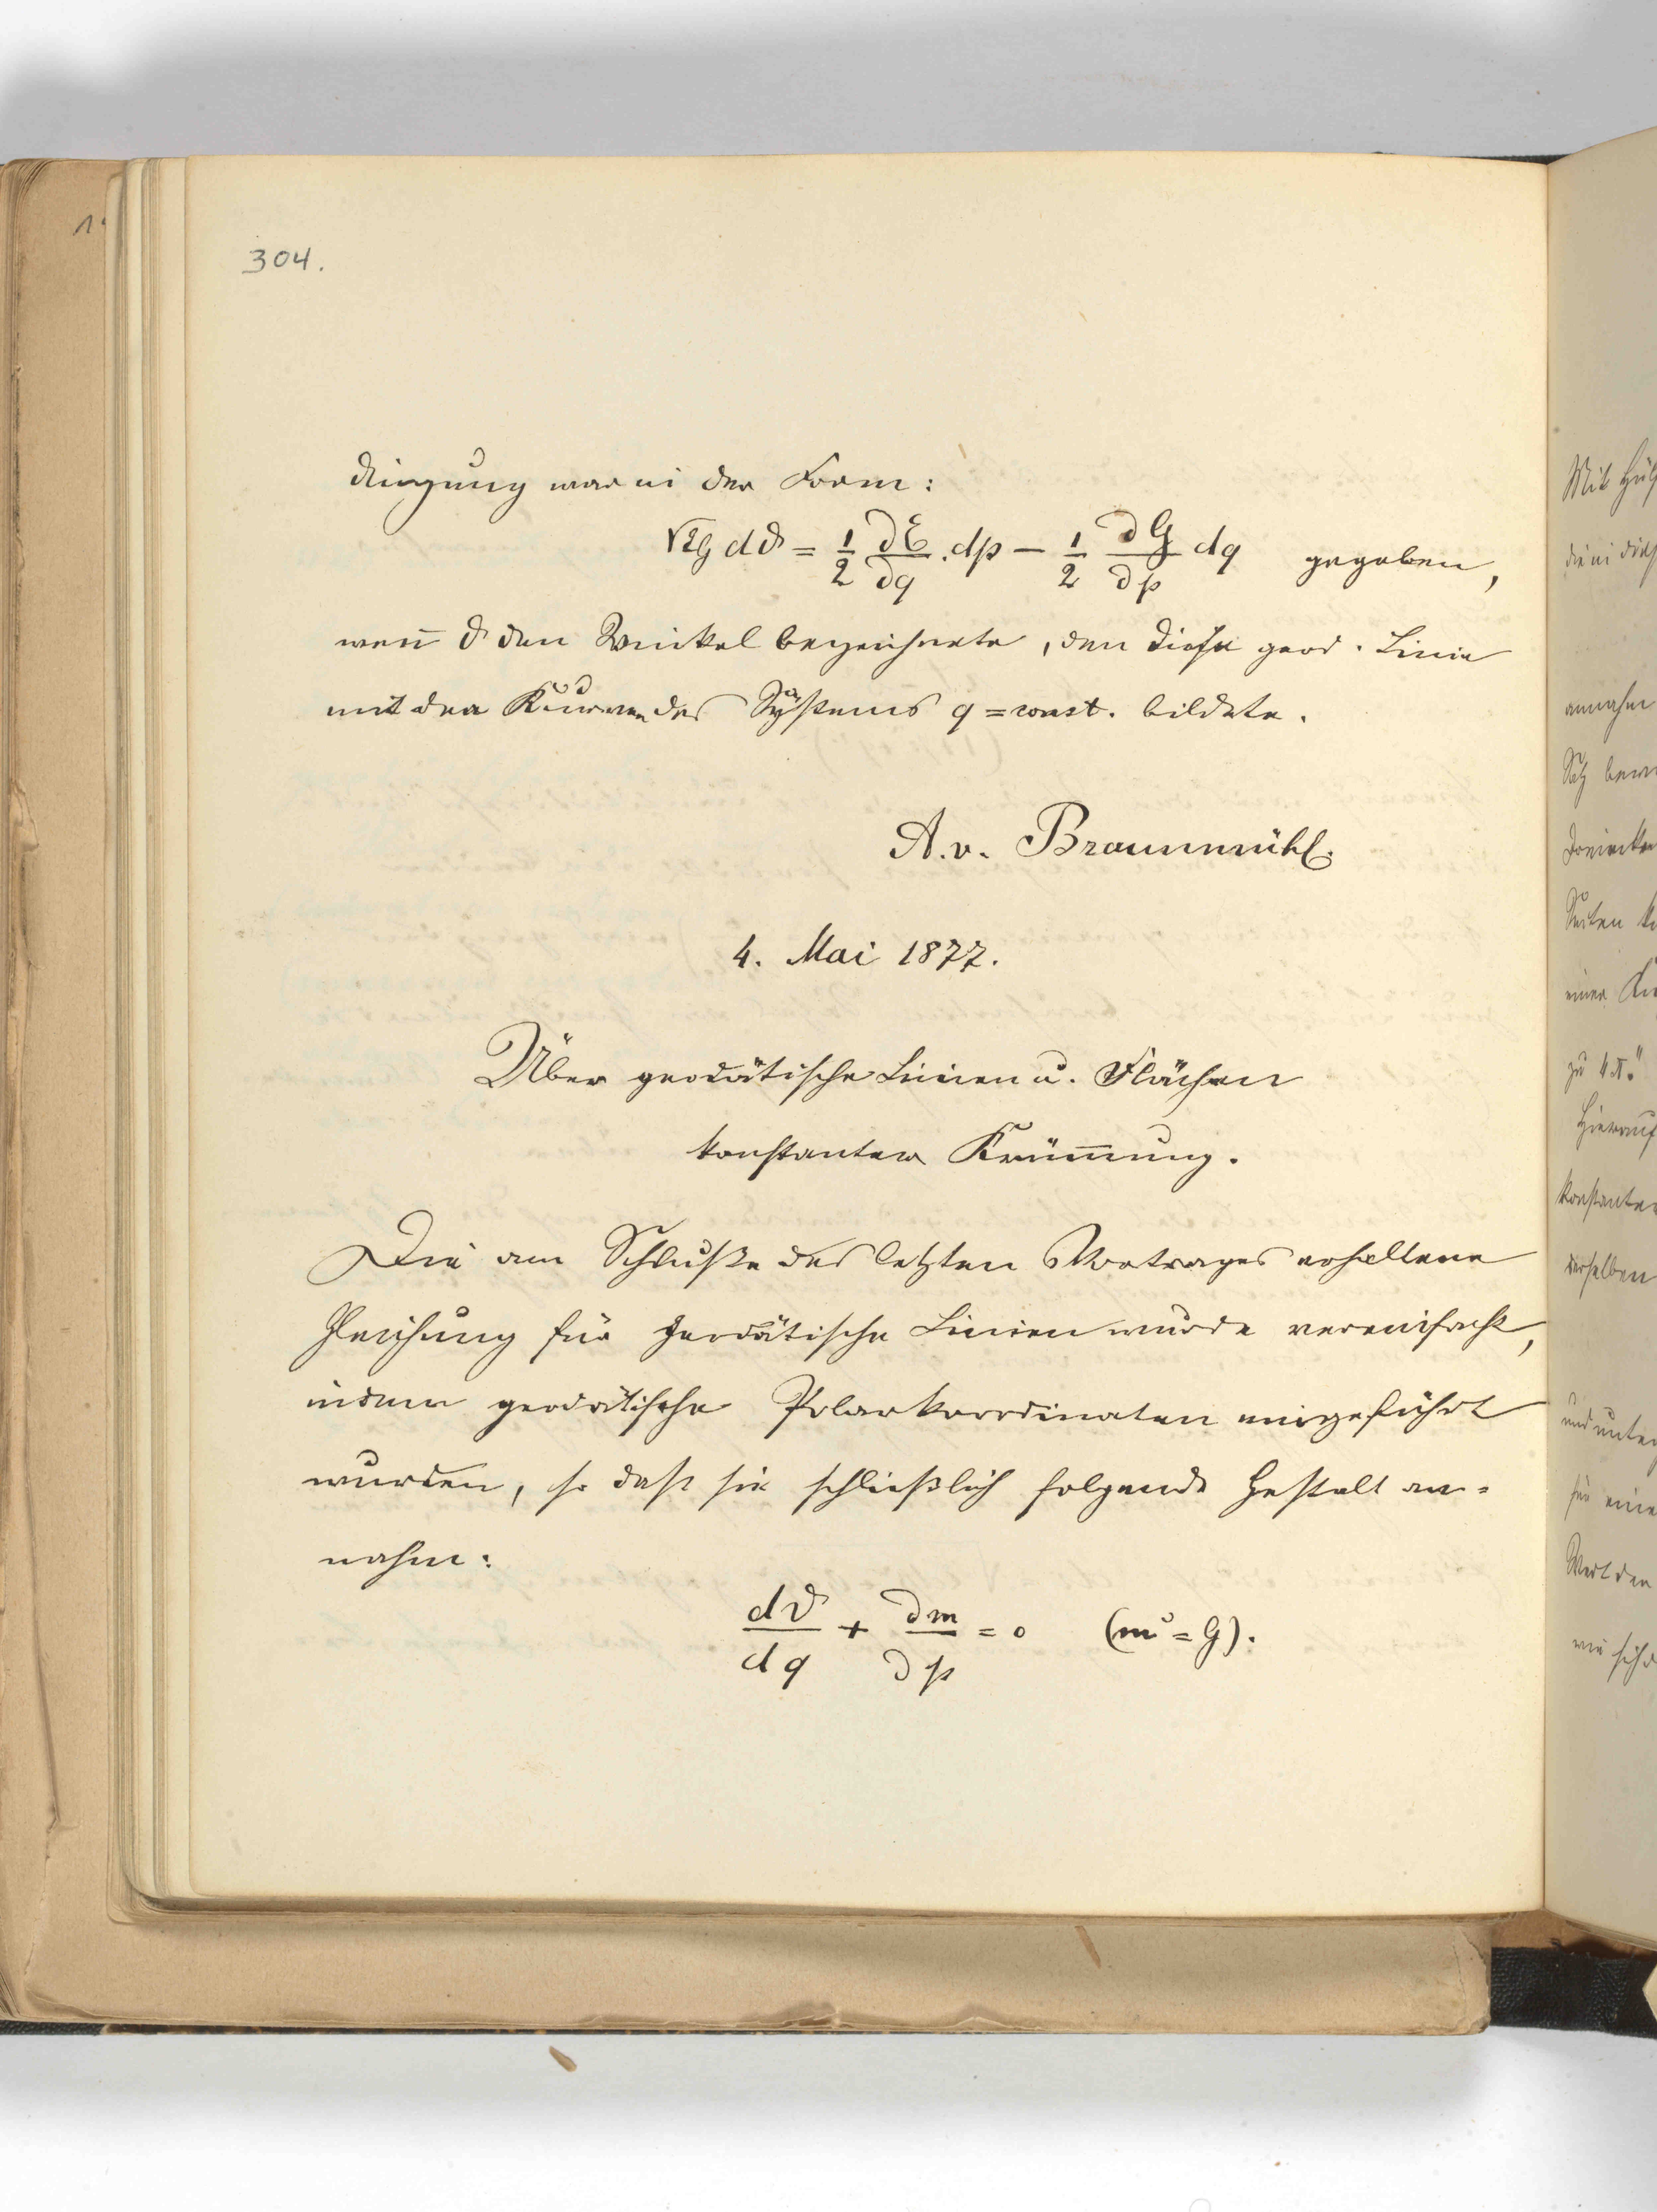 304.
dingung war in der Form:
√EG dϑ = 1/2 ∂E/∂q . dp − 1/2 ∂G/∂p dq gegeben,
weñ ϑ den Winkel bezeichnete, den diese geod. Linie
mit den Kurven des Systems q = const. bildete.
A. v. Braunmühl.
4. Mai 1877.
Über geodätische Linien u. Flächen
konstanter Krüm̄ung.
Die am Schluße des letzten Vortrages erhaltene
Gleichung für geodätische Linien wurde vereinfacht,
indem geodätische Polarkoordinaten eingeführt
wurden, so daß sie schließlich folgende Gestalt an-
nahm:
dϑ/dq + ∂m/∂p = 0 (m² = G).
Mit
annahm
Satz
Seiten
einer
zu 4π."
Hierauf
konstanter
derselben
und
für eine
Wert den